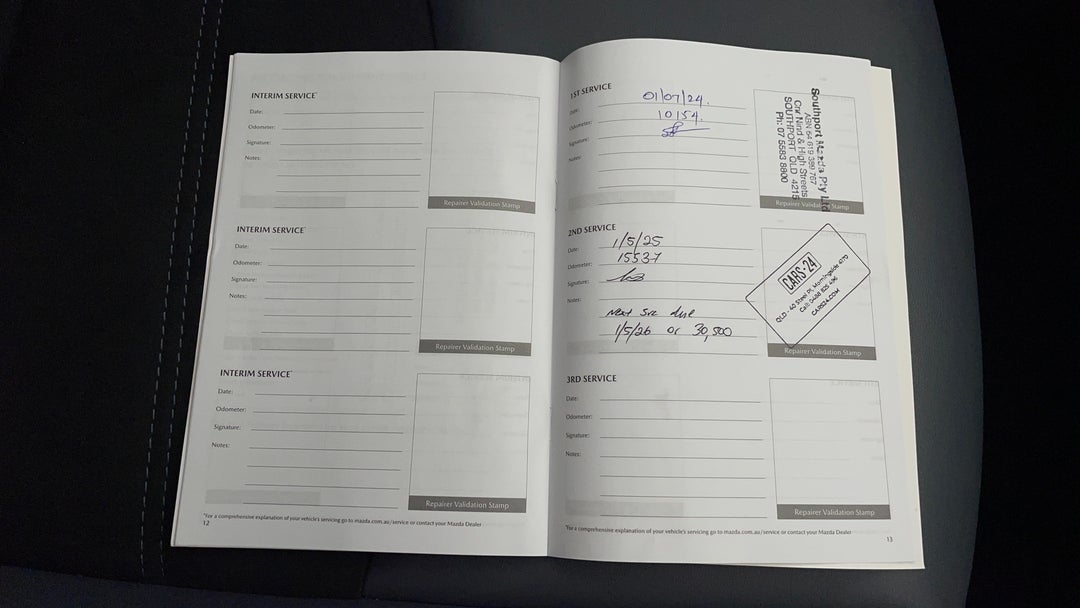 INTERIM SERVICE*
Date:
Odometer:
Signature:
Notes:
Repairer Validation Stamp
INTERIM SERVICE*
Date:
Odometer:
Signature:
Notes:
Repairer Validation Stamp
INTERIM SERVICE*
Date:
Odometer:
Signature:
Notes:
Repairer Validation Stamp
*For a comprehensive explanation of your vehicle's servicing go to mazda.com.au/service or contact your Mazda Dealer
12
1ST SERVICE
Date: 01/07/24.
Odometer: 10154.
Signature:
Notes:
Southport Mazda Pty Ltd
ABN 64 619 389 767
Cnr Nind & High Streets
SOUTHPORT QLD 4215
Ph: 07 5583 8800
Repairer Validation Stamp
2ND SERVICE
Date: 1/5/25
Odometer: 15537
Signature:
Notes:
Next Src due
1/5/26 or 30,500
CARS·24
QLD - 40 Steel Pl, Morningside 4170
CARS24.COM
Repairer Validation Stamp
3RD SERVICE
Date:
Odometer:
Signature:
Notes:
Repairer Validation Stamp
*For a comprehensive explanation of your vehicle's servicing go to mazda.com.au/service or contact your Mazda Dealer
13